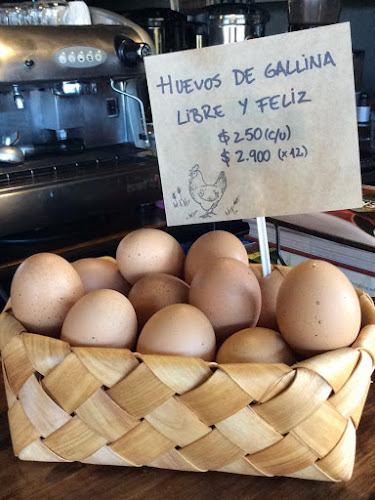 HUEVOS DE GALLINA
LIBRE Y FELIZ
$ 250 (c/u)
$ 2.900 (x 12)